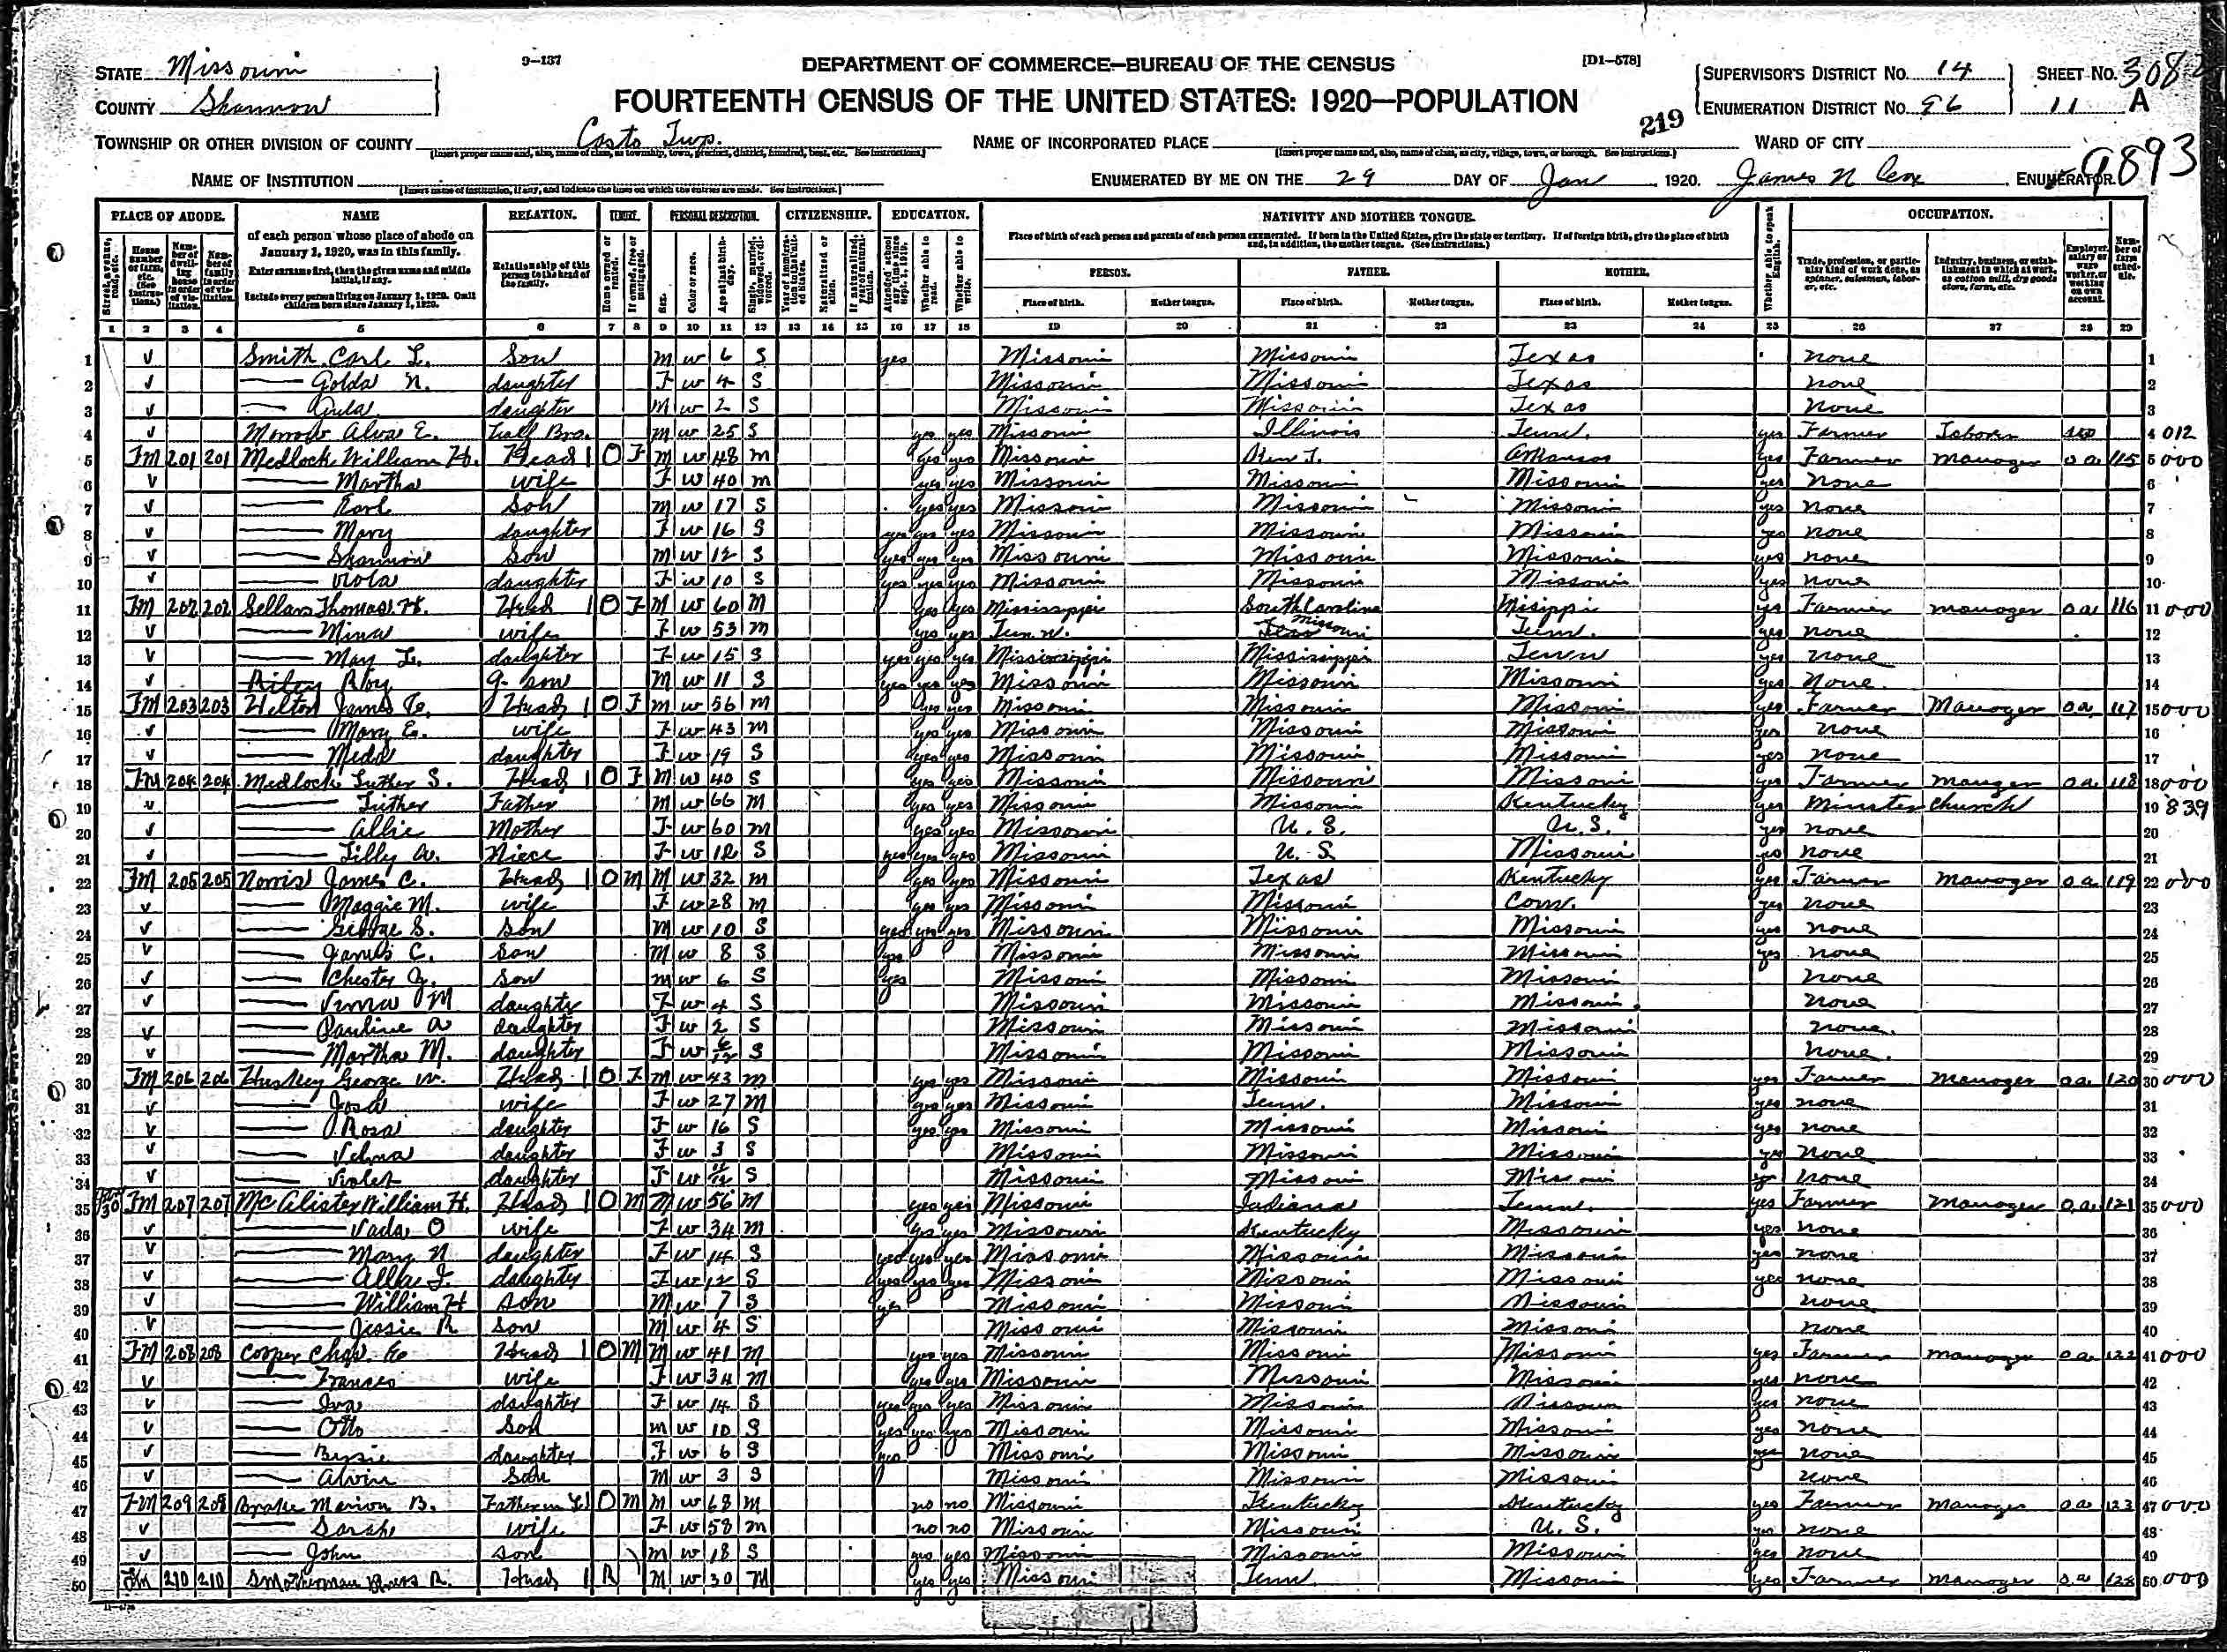 9-137
DEPARTMENT OF COMMERCE—BUREAU OF THE CENSUS
[D1-578]
STATE Missouri
SUPERVISOR'S DISTRICT NO. 14
SHEET NO. 308
COUNTY Shannon
FOURTEENTH CENSUS OF THE UNITED STATES: 1920—POPULATION
ENUMERATION DISTRICT NO. 96
11 A
219
TOWNSHIP OR OTHER DIVISION OF COUNTY Casto Twp.
NAME OF INCORPORATED PLACE
WARD OF CITY
9893
NAME OF INSTITUTION
ENUMERATED BY ME ON THE 29 DAY OF Jan 1920. James N Cox ENUMERATOR.
PLACE OF ABODE. NAME RELATION. TENURE. PERSONAL DESCRIPTION. CITIZENSHIP. EDUCATION. NATIVITY AND MOTHER TONGUE. OCCUPATION.
of each person whose place of abode on January 1, 1920, was in this family.
Enter surname first, then the given name and middle initial, if any.
Include every person living on January 1, 1920. Omit children born since January 1, 1920.
Relationship of this person to the head of the family.
Place of birth of each person and parents of each person enumerated. If born in the United States, give the state or territory. If of foreign birth, give the place of birth and, in addition, the mother tongue. (See instructions.)
PERSON. FATHER. MOTHER.
Place of birth. Mother tongue. Place of birth. Mother tongue. Place of birth. Mother tongue.
1 2 3 4 5 6 7 8 9 10 11 12 13 14 15 16 17 18 19 20 21 22 23 24 25 26 27 28 29
1 Smith Carl L. Son M W 6 S yes Missouri Missouri Texas none 1
2 Golda N. daughter F W 4 S Missouri Missouri Texas none 2
3 daughter M W 2 S Missouri Missouri Texas none 3
4 Alva E. half Bro. M W 25 S yes yes Missouri Illinois Tenn. yes Farmer Labor 4 012
5 FM 201 201 Medlock William H. Head 1 O F M W 48 M yes yes Missouri Arkansas yes Farmer manager o a 115 5 000
6 Martha wife F W 40 M yes yes Missouri Missouri Missouri yes none 6
7 Earl Son M W 17 S yes yes Missouri Missouri Missouri yes none 7
8 Mary daughter F W 16 S yes yes yes Missouri Missouri Missouri yes none 8
9 Shannon Son M W 12 S yes yes yes Missouri Missouri Missouri yes none 9
10 Viola daughter F W 10 S yes yes yes Missouri Missouri Missouri yes none 10
11 FM 202 202 Sellars Thomas H. Head 1 O F M W 60 M yes yes Mississippi South Carolina Misippi yes Farmer manager o a 116 11 000
12 Mina wife F W 53 M yes yes Tenn. Missouri Tenn. yes none 12
13 May L. daughter F W 15 S yes yes yes Mississippi Mississippi Tenn yes none 13
14 Riley Roy g- son M W 11 S yes yes yes Missouri Missouri Missouri yes none 14
15 FM 203 203 Helton James Head 1 O F M W 56 M yes yes Missouri Missouri Missouri yes Farmer manager o a 117 15 000
16 Mary E. wife F W 43 M yes yes Missouri Missouri Missouri yes none 16
17 Meda daughter F W 19 S yes yes Missouri Missouri Missouri yes none 17
18 FM 204 204 Medlock Luther S. Head 1 O F M W 40 S yes yes Missouri Missouri Missouri yes Farmer manager o a 118 18 000
19 Luther Father M W 66 M yes yes Missouri Missouri Kentucky yes Minister church 19 839
20 Allie Mother F W 60 M yes yes Missouri U. S. U. S. yes none 20
21 Lilly A. Niece F W 12 S yes yes yes Missouri U. S Missouri yes none 21
22 FM 205 205 Norris James C. Head 1 O M M W 32 M yes yes Missouri Texas Kentucky yes Farmer manager o a 119 22 000
23 Maggie M. wife F W 28 M yes yes Missouri Missouri Conn. yes none 23
24 George S. Son M W 10 S yes yes yes Missouri Missouri Missouri yes none 24
25 James C. Son M W 8 S yes Missouri Missouri Missouri yes none 25
26 Chester J. Son M W 6 S yes Missouri Missouri Missouri none 26
27 Verna M daughter F W 4 S Missouri Missouri Missouri none 27
28 Pauline A daughter F W 2 S Missouri Missouri Missouri none. 28
29 Martha M. daughter F W 6/12 S Missouri Missouri Missouri none. 29
30 FM 206 206 Huskey George W. Head 1 O F M W 43 M yes yes Missouri Missouri Missouri yes Farmer manager o a 120 30 000
31 Josa wife F W 27 M yes yes Missouri Tenn. Missouri yes none 31
32 Rosa daughter F W 16 S yes yes Missouri Missouri Missouri yes none 32
33 Velma daughter F W 3 S Missouri Missouri Missouri yes none 33
34 Violet daughter F W S Missouri Missouri Missouri none 34
35 FM 207 207 McAlister William H. Head 1 O M M W 56 M yes yes Missouri Indiana Tenn. yes Farmer manager o a 121 35 000
36 Vada O wife F W 34 M yes yes Missouri Kentucky Missouri yes none 36
37 Mary N daughter F W 14 S yes yes yes Missouri Missouri Missouri yes none 37
38 Alla J. daughter F W 12 S yes yes yes Missouri Missouri Missouri yes none 38
39 William H son M W 7 S yes Missouri Missouri Missouri none 39
40 Jessie R son M W 4 S Missouri Missouri Missouri none 40
41 FM 208 208 Cooper Chas. Head 1 O M M W 41 M yes yes Missouri Missouri Missouri yes Farmer manager o a 122 41 000
42 Frances wife F W 34 M yes yes Missouri Missouri Missouri yes none 42
43 Iva daughter F W 14 S yes yes yes Missouri Missouri Missouri yes none 43
44 Otto Son M W 10 S yes yes yes Missouri Missouri Missouri yes none 44
45 Bessie daughter F W 6 S yes Missouri Missouri Missouri yes none 45
46 Alvin Son M W 3 S Missouri Missouri Missouri none 46
47 FM 209 209 Brake Marion B. Father in L 1 O M M W 68 M no no Missouri Kentucky Kentucky yes Farmer manager o a 123 47 000
48 Sarah wife F W 58 M no no Missouri Missouri U. S. yes none 48
49 John son M W 18 S yes yes Missouri Missouri Missouri yes none 49
50 FM 210 210 Smotherman R. Head 1 R M W 30 M yes yes Missouri Tenn. Missouri yes Farmer manager o a 124 50 000